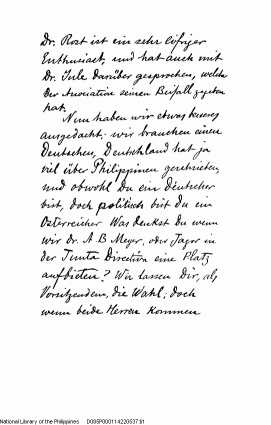 Dr. Rost ist ein sehr eifriger
Enthusiast, und hat auch mit
Dr. Jule darüber gesprochen, welche
der Association seinen Beifall gegeben
hat.
Nun haben wir etwas
ausgedacht; wir brauchen einen
Deutschen, Deutschland hat ja
viel über Philippinen geschrieben,
und obwohl Du ein deutscher
bist, doch politisch bist du ein
Österreicher Was denkst Du wenn
wir Dr. A B Meyer, oder Jagor in
der Junta Direction eine Platz
aufbieten? Wir lassen Dir, als
Vorsitzendem, die Wahl; doch
wenn beide Herren kommen
National Library of the Philippines